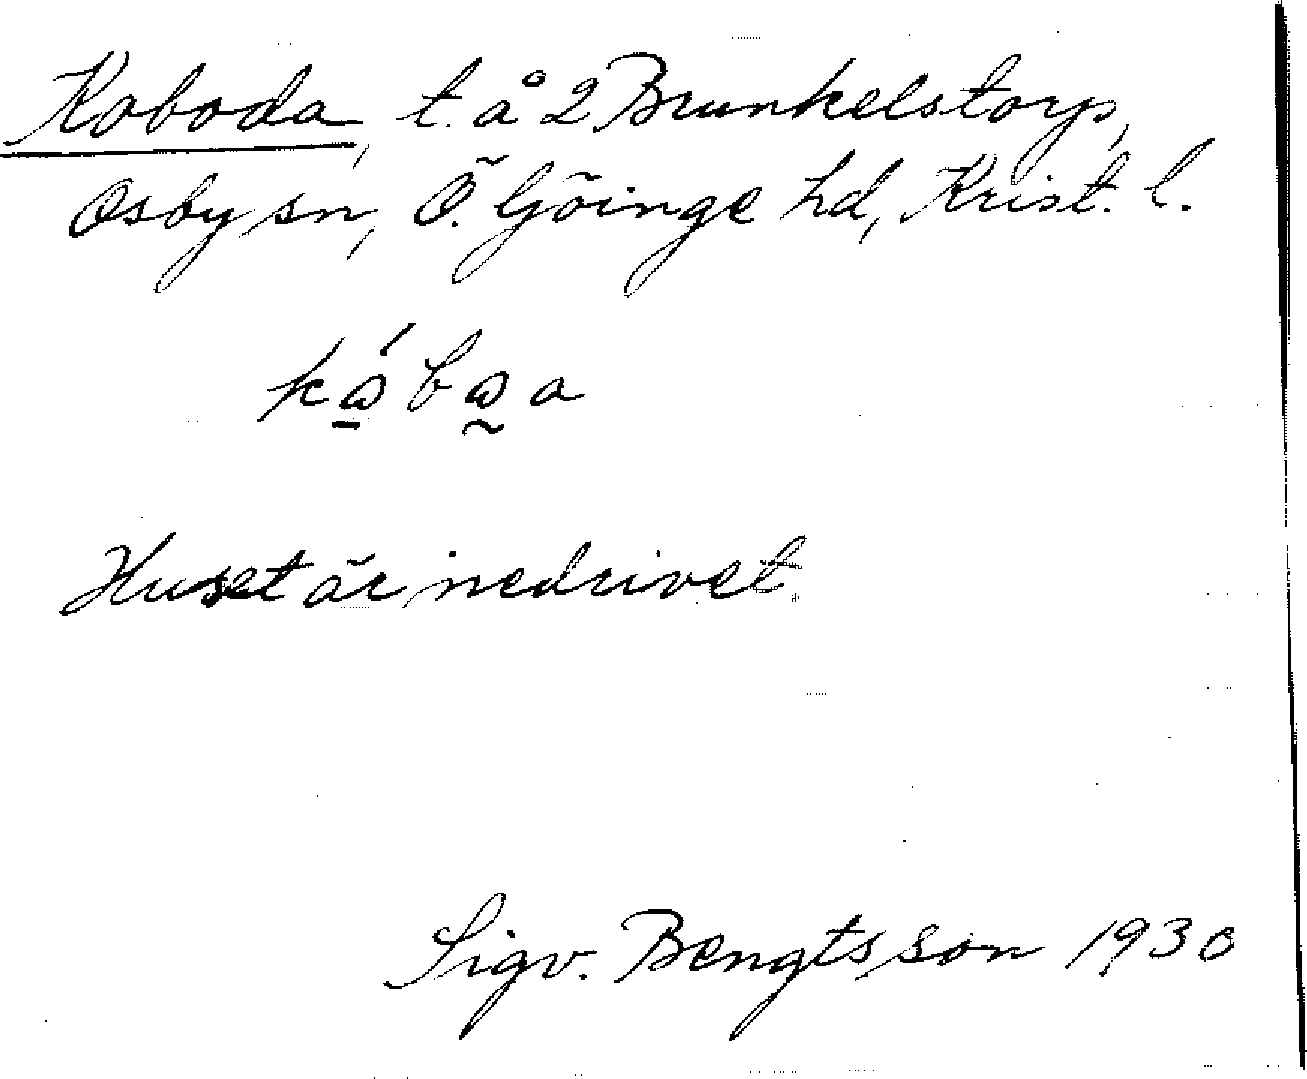 Koboda, t. å 2 Brunkelstorp,
Osby sn, Ö. Göinge hd, Krist. l.
Huset är nedrivet.
Sigv. Bengtsson 1930